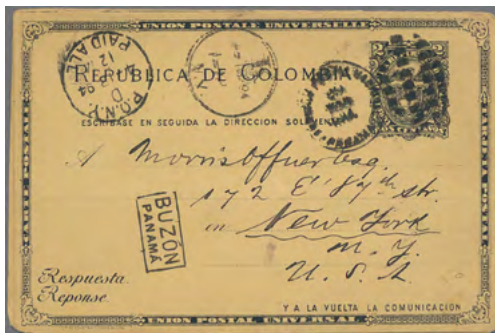 UNION POSTALE UNIVERSELLE
REPÚBLICA DE COLOMBIA
ESCRÍBASE EN SEGUIDA LA DIRECCION SOLAMENTE
P.O.N.Y.
94
PAID ALL
N.Y.
PANAMA
A Morris Offner Esq.
172 E' 87th str.
in New York
N. Y.
U. S. A.
BUZÓN
PANAMÁ
Respuesta.
Reponse.
Y A LA VUELTA LA COMUNICACION
UNION POSTAL UNIVERSAL